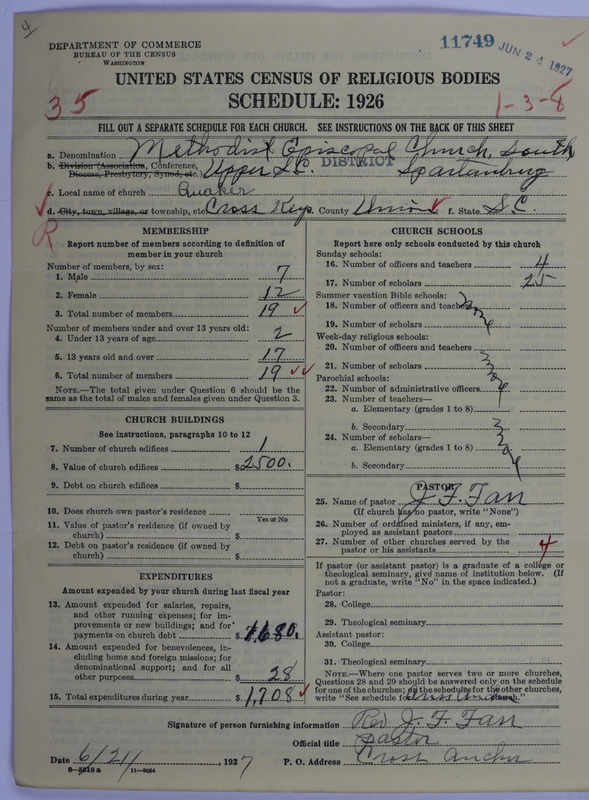 4
DEPARTMENT OF COMMERCE
BUREAU OF THE CENSUS
WASHINGTON
11749 JUN 24 1927
UNITED STATES CENSUS OF RELIGIOUS BODIES
35 SCHEDULE: 1926 1-3-8
FILL OUT A SEPARATE SCHEDULE FOR EACH CHURCH. SEE INSTRUCTIONS ON THE BACK OF THIS SHEET
a. Denomination Methodist Episcopal Church, South
b. Division (Association, Conference, Diocese, Presbytery, Synod, etc. Upper S.C. DISTRICT Spartanburg
c. Local name of church Quaker
d. City, town, village, or township, etc. Cross Keys County Union f. State S C
R
MEMBERSHIP
Report number of members according to definition of
member in your church
Number of members, by sex:
1. Male 7
2. Female 12
3. Total number of members 19
Number of members under and over 13 years old:
4. Under 13 years of age 2
5. 13 years old and over 17
6. Total number of members 19
NOTE.—The total given under Question 6 should be the
same as the total of males and females given under Question 3.
CHURCH BUILDINGS
See instructions, paragraphs 10 to 12
7. Number of church edifices 1
8. Value of church edifices $2500.
9. Debt on church edifices $
10. Does church own pastor's residence
Yes or No
11. Value of pastor's residence (if owned by
church) $
12. Debt on pastor's residence (if owned by
church) $
EXPENDITURES
Amount expended by your church during last fiscal year
13. Amount expended for salaries, repairs,
and other running expenses; for im-
provements or new buildings; and for
payments on church debt $ 1680.
14. Amount expended for benevolences, in-
cluding home and foreign missions; for
denominational support; and for all
other purposes $ 28
15. Total expenditures during year $ 1,708
CHURCH SCHOOLS
Report here only schools conducted by this church
Sunday schools:
16. Number of officers and teachers 4
17. Number of scholars 25
Summer vacation Bible schools:
18. Number of officers and teachers none
19. Number of scholars
Week-day religious schools:
20. Number of officers and teachers
21. Number of scholars none
Parochial schools:
22. Number of administrative officers
23. Number of teachers—
a. Elementary (grades 1 to 8)
b. Secondary none
24. Number of scholars—
a. Elementary (grades 1 to 8)
b. Secondary
PASTOR
25. Name of pastor J. F. Farr
(If church has no pastor, write "None")
26. Number of ordained ministers, if any, em-
ployed as assistant pastors
27. Number of other churches served by the
pastor or his assistants 4
If pastor (or assistant pastor) is a graduate of a college or
theological seminary, give name of institution below. (If
not a graduate, write "No" in the space indicated.)
Pastor:
28. College
29. Theological seminary
Assistant pastor:
30. College
31. Theological seminary
NOTE.—Where one pastor serves two or more churches,
Questions 28 and 29 should be answered only on the schedule
for one of the churches; on the schedule for the other churches,
write "See schedule for church."
Signature of person furnishing information Rev J. F. Farr
Official title Pastor
Date 6/21/, 1927 P. O. Address Cross Anchor
8-5218 a 11-9054